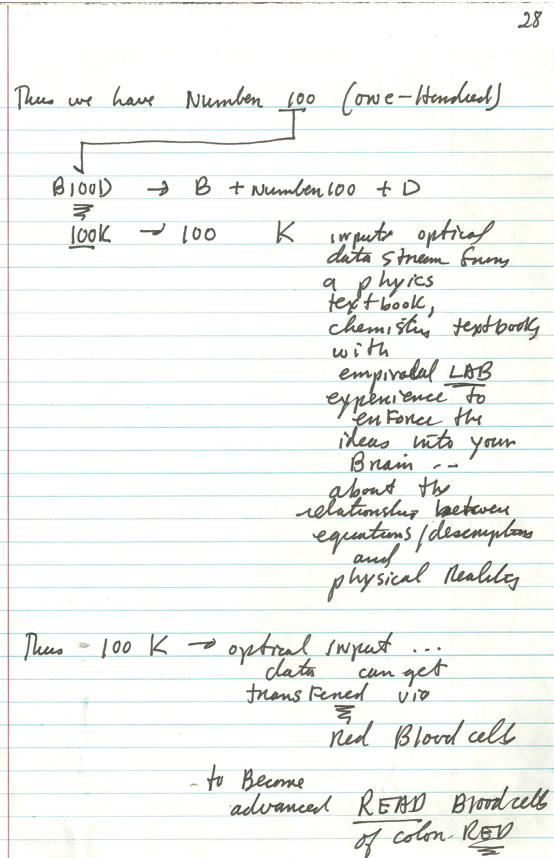 28
Thus we have Number 100 (one-Hundred)
B100D → B + Number 100 + D
100K → 100 K inputs optical
data stream from
a phyics
textbook,
chemistry textbooks
with
empiradal LAB
experience to
enForce the
ideas into your
Brain --
about the
relationship between
equations/descriptions
and
physical Reality
Thus - 100 K → optical input ...
data can get
transFerred via
Red Blood cells
to Become
advanced READ Blood cells
of color RED